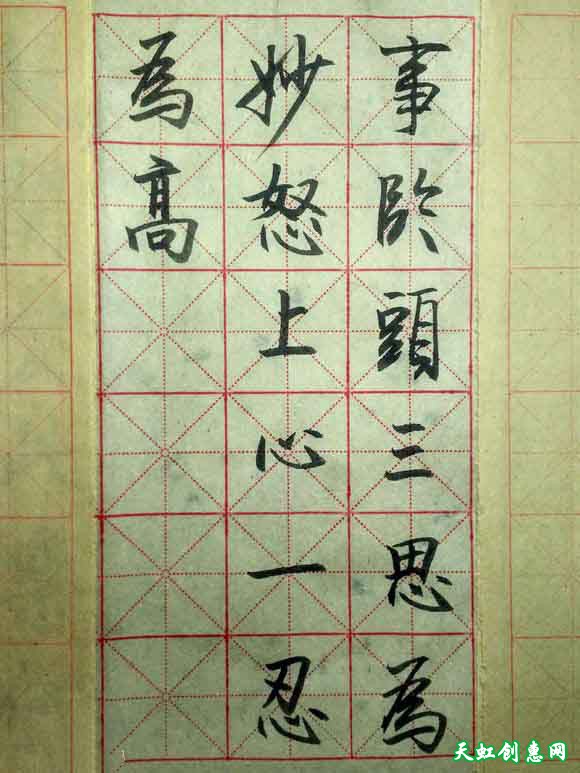 事臨頭三思為
妙怒上心一忍
為髙
天虹创惠网